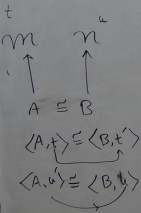 t u
m n
A ≅ B
⟨A, t⟩ ≅ ⟨B, t'⟩
⟨A, u'⟩ ≅ ⟨B, u⟩